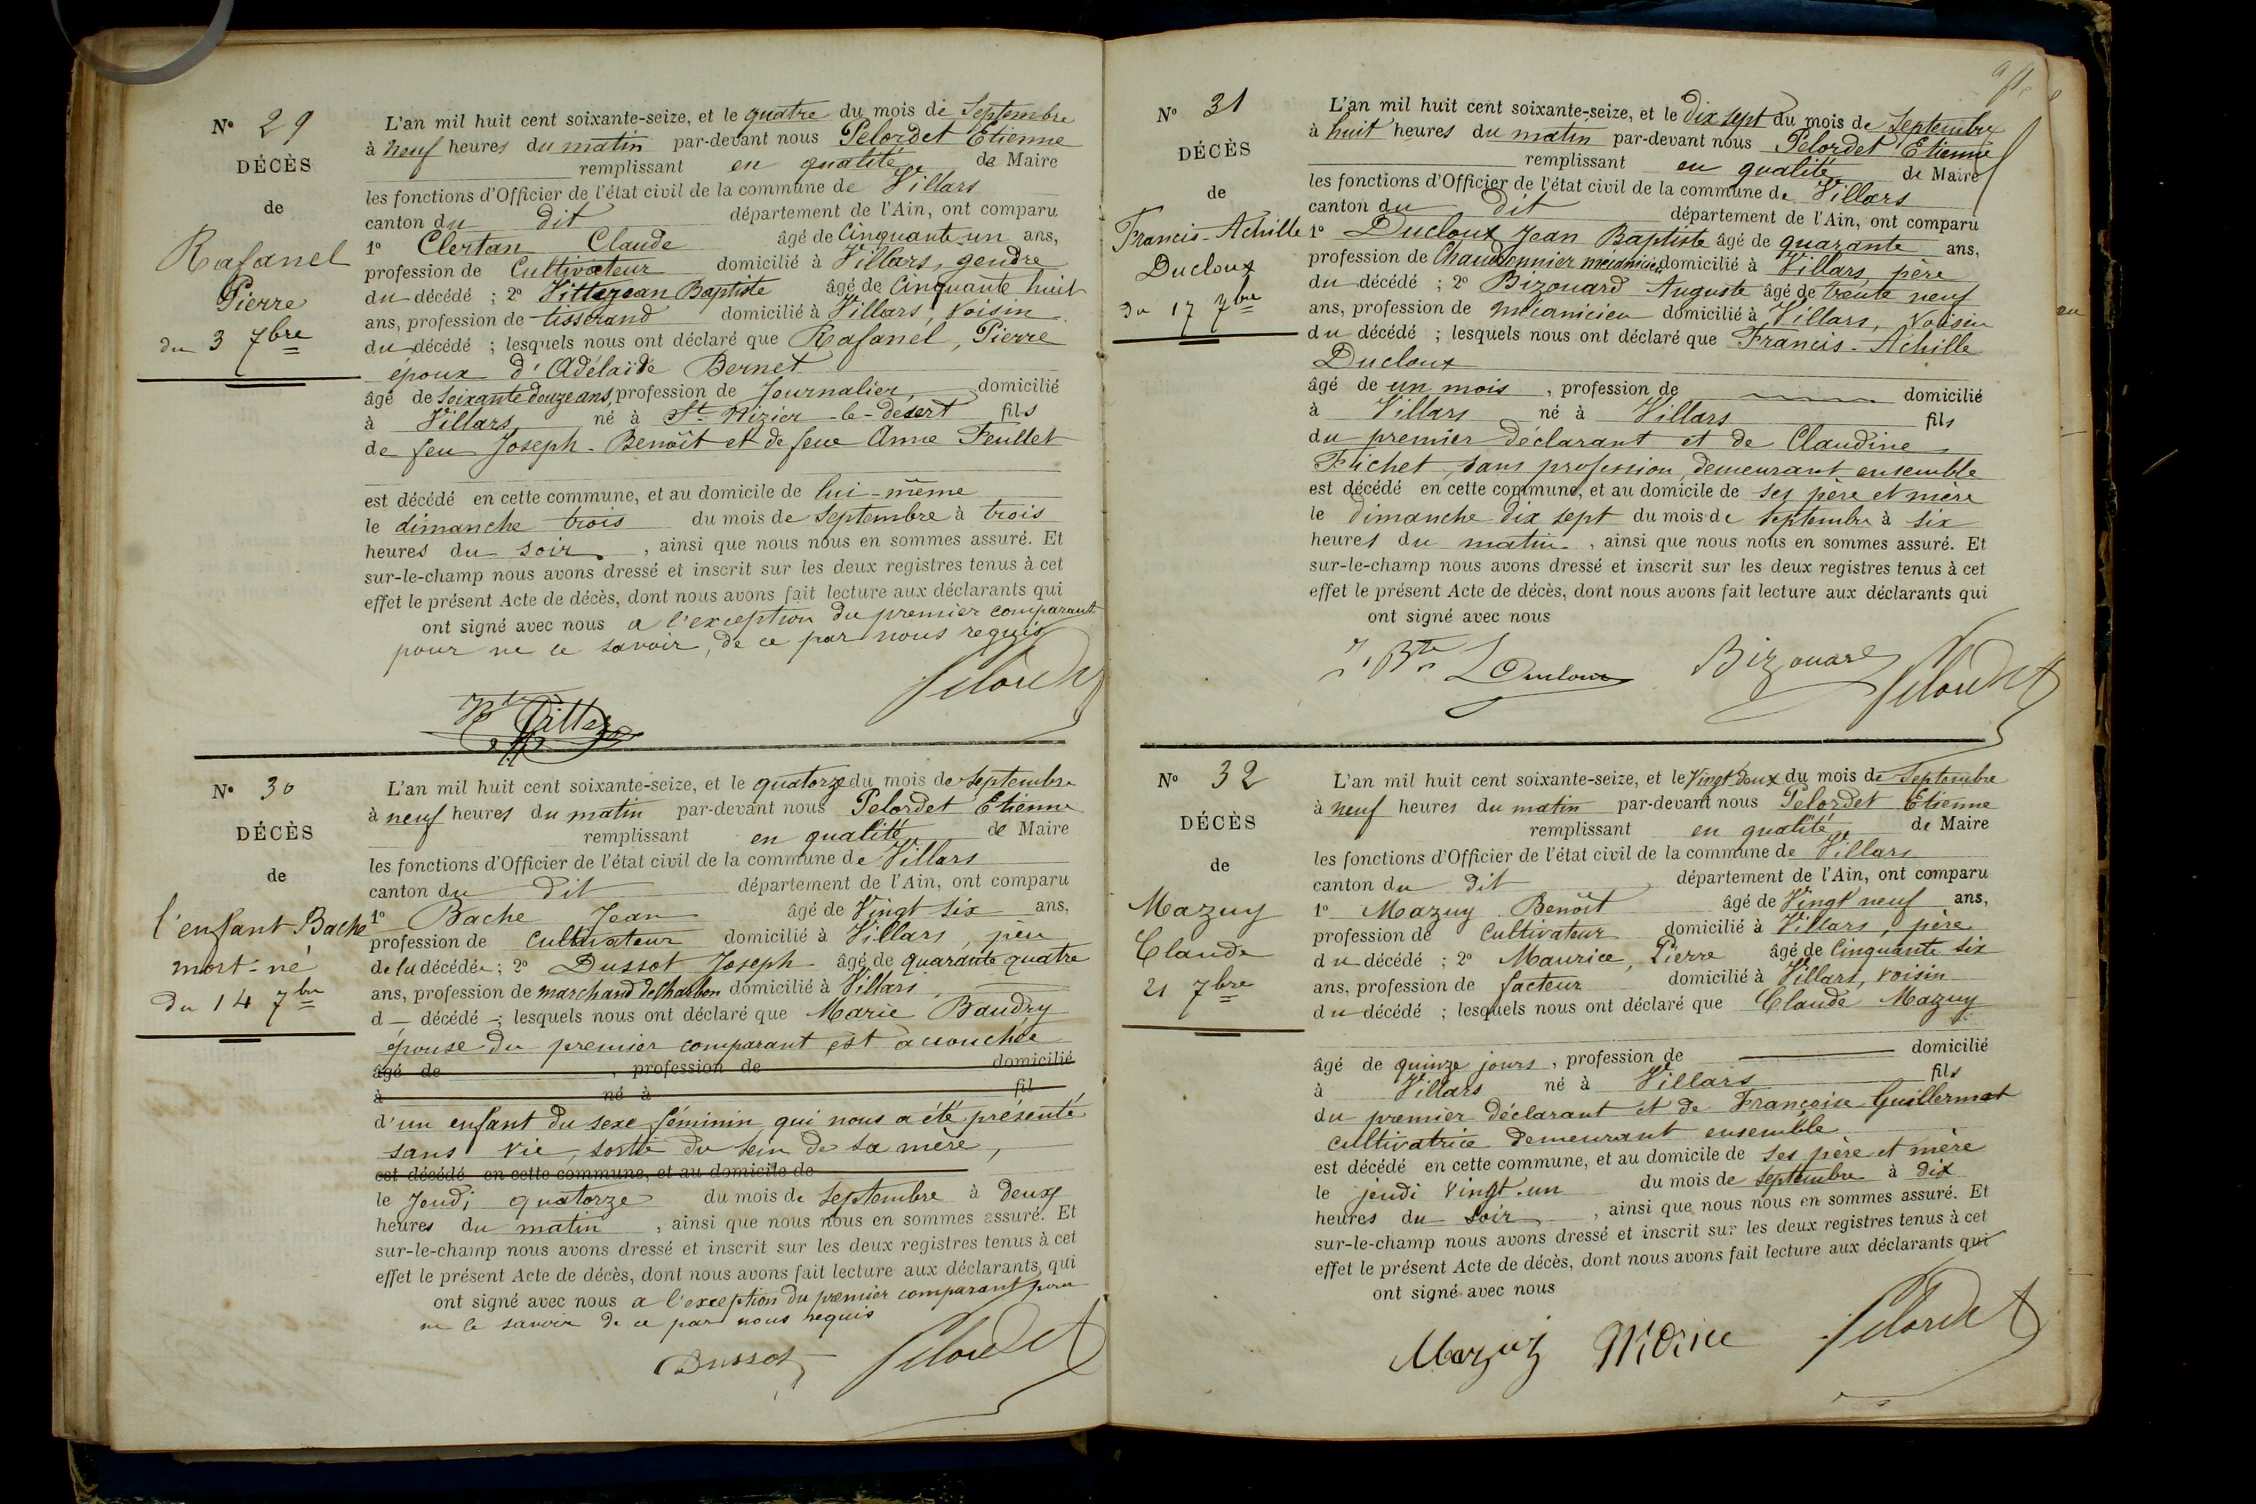 N° 29
DÉCÈS
de
Rafanel
Pierre
du 3 7bre
L'an mil huit cent soixante-seize, et le quatre du mois de Septembre
à neuf heures du matin par-devant nous Pelordet Etienne
remplissant en qualité de Maire
les fonctions d'Officier de l'état civil de la commune de Villars
canton du dit département de l'Ain, ont comparu
1° Clertan Claude âgé de Cinquante un ans,
profession de Cultivateur domicilié à Villars, gendre
du décédé ; 2° Vittezean Baptiste âgé de Cinquante huit
ans, profession de tisserand domicilié à Villars, voisin
du décédé ; lesquels nous ont déclaré que Rafanel, Pierre
époux d'Adélaïde Bernet
âgé de soixante douze ans, profession de Journalier, domicilié
à Villars né à St Nizier-le-desert fils
de feu Joseph-Benoît et de feue Anne Feullet
est décédé en cette commune, et au domicile de lui-même
le dimanche trois du mois de Septembre à trois
heures du soir, ainsi que nous nous en sommes assuré. Et
sur-le-champ nous avons dressé et inscrit sur les deux registres tenus à cet
effet le présent Acte de décès, dont nous avons fait lecture aux déclarants qui
ont signé avec nous a l'exception du premier comparant
pour ne le savoir, de ce par nous requis
Pelordet
N° 30
DÉCÈS
de
l'enfant Bache
mort-né
du 14 7bre
L'an mil huit cent soixante-seize, et le quatorze du mois de Septembre
à neuf heures du matin par-devant nous Pelordet Etienne
remplissant en qualité de Maire
les fonctions d'Officier de l'état civil de la commune de Villars
canton du dit département de l'Ain, ont comparu
1° Bache Jean âgé de Vingt six ans,
profession de cultivateur domicilié à Villars, père
de la décédée ; 2° Dussot Joseph âgé de quarante quatre
ans, profession de marchand de Charbon domicilié à Villars
d — décédé ; lesquels nous ont déclaré que Marie Baudry
épouse du premier comparant est accouchée
âgé de , profession de domicilié
à né à fil
d'un enfant du sexe féminin qui nous a été présenté
sans vie, sortie du sein de sa mère,
est décédé en cette commune, et au domicile de
le Jeudi quatorze du mois de Septembre à deux
heures du matin, ainsi que nous nous en sommes assuré. Et
sur-le-champ nous avons dressé et inscrit sur les deux registres tenus à cet
effet le présent Acte de décès, dont nous avons fait lecture aux déclarants qui
ont signé avec nous a l'exception du premier comparant pour
ne le savoir de ce par nous requis
Dussot Pelordet
N° 31
DÉCÈS
de
Francis-Achille
Ducloux
du 17 7bre
L'an mil huit cent soixante-seize, et le dix sept du mois de Septembre
à huit heures du matin par-devant nous Pelordet Etienne
remplissant en qualité de Maire
les fonctions d'Officier de l'état civil de la commune de Villars
canton du dit département de l'Ain, ont comparu
1° Ducloux Jean Baptiste âgé de quarante ans,
profession de Chaudronnier mécanicien domicilié à Villars, père
du décédé ; 2° Bizouard Auguste âgé de trente neuf
ans, profession de mécanicien domicilié à Villars, voisin
du décédé ; lesquels nous ont déclaré que Francis-Achille
Ducloux
âgé de un mois, profession de domicilié
à Villars né à Villars fils
du premier déclarant et de Claudine
Frichet, sans profession, demeurant ensemble
est décédé en cette commune, et au domicile de ses père et mère
le dimanche dix sept du mois de septembre à six
heures du matin, ainsi que nous nous en sommes assuré. Et
sur-le-champ nous avons dressé et inscrit sur les deux registres tenus à cet
effet le présent Acte de décès, dont nous avons fait lecture aux déclarants qui
ont signé avec nous
J. Bte Ducloux Bizouard Pelordet
N° 32
DÉCÈS
de
Mazuy
Claude
21 7bre
L'an mil huit cent soixante-seize, et le Vingt deux du mois de Septembre
à neuf heures du matin par-devant nous Pelordet Etienne
remplissant en qualité de Maire
les fonctions d'Officier de l'état civil de la commune de Villars
canton du dit département de l'Ain, ont comparu
1° Mazuy Benoît âgé de Vingt neuf ans,
profession de Cultivateur domicilié à Villars, père
du décédé ; 2° Maurice, Pierre âgé de Cinquante six
ans, profession de facteur domicilié à Villars, voisin
du décédé ; lesquels nous ont déclaré que Claude Mazuy
âgé de quinze jours, profession de domicilié
à Villars né à Villars fils
du premier déclarant et de Françoise Guillermat
cultivatrice demeurant ensemble
est décédé en cette commune, et au domicile de ses père et mère
le jeudi vingt-un du mois de septembre à dix
heures du soir, ainsi que nous nous en sommes assuré. Et
sur-le-champ nous avons dressé et inscrit sur les deux registres tenus à cet
effet le présent Acte de décès, dont nous avons fait lecture aux déclarants qui
ont signé avec nous
Mazuy Morice Pelordet